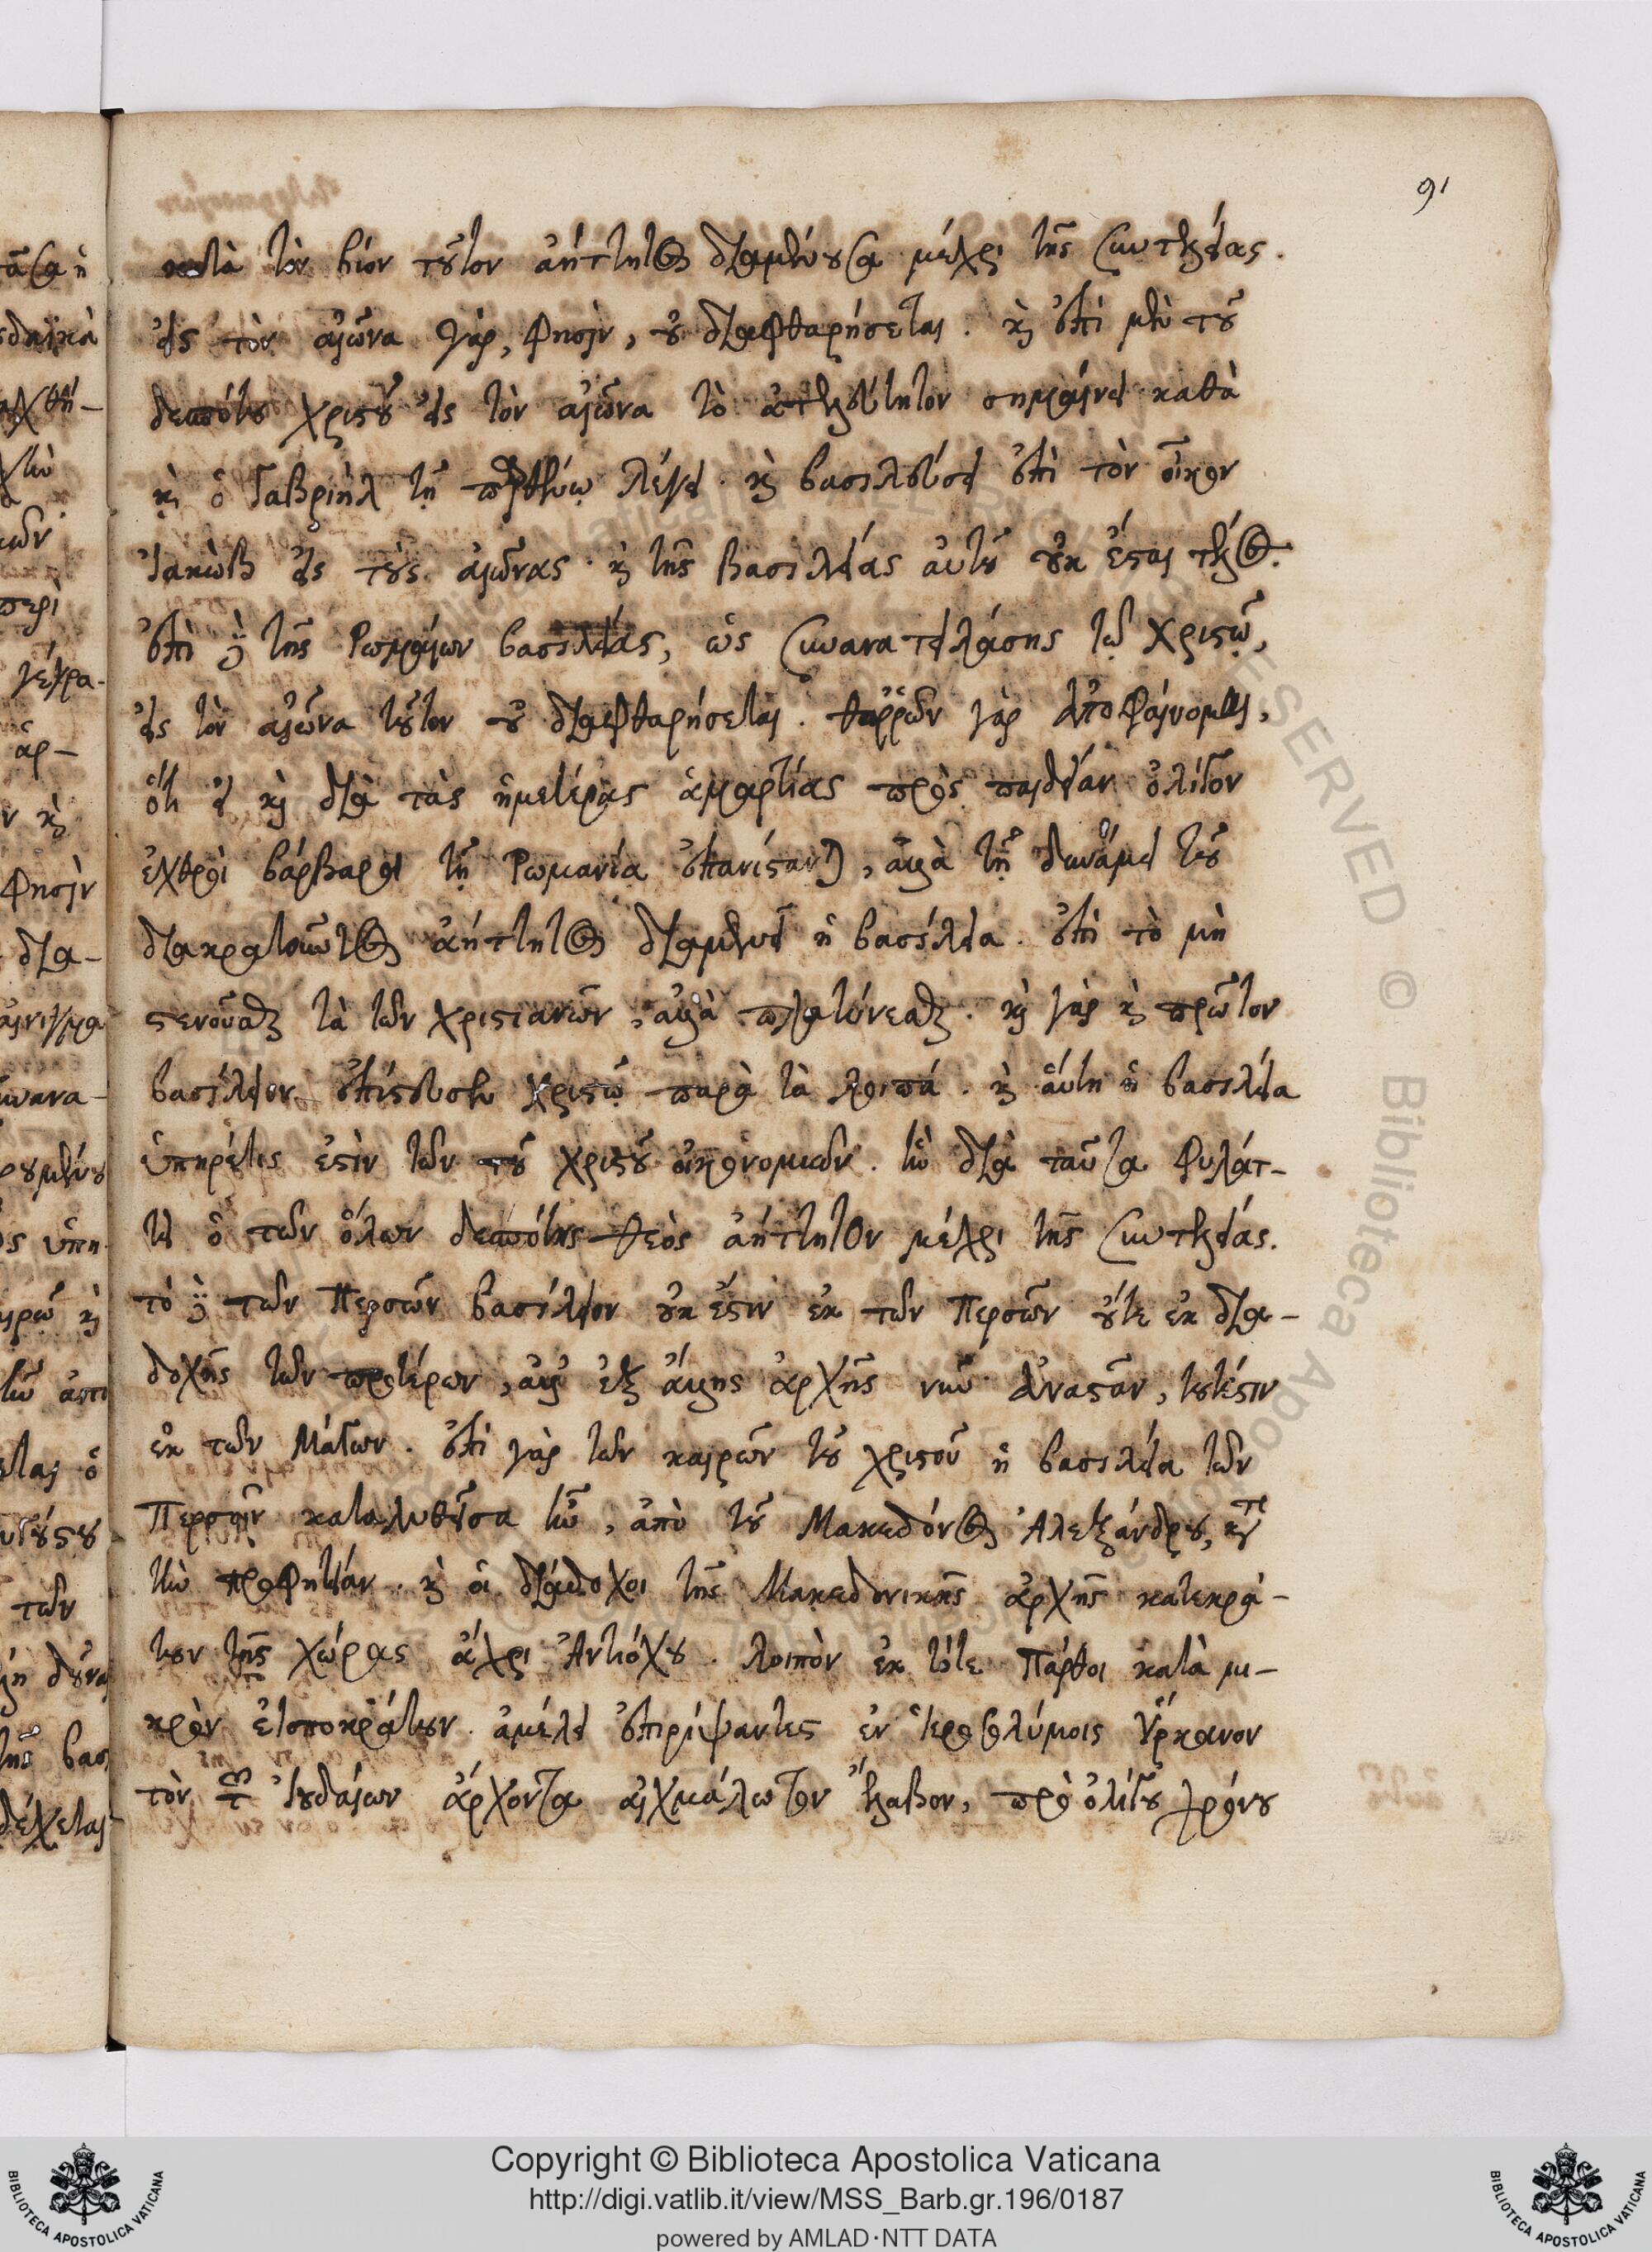 91
κατὰ τὸν βίον τοῦτον ἀήττητος διαμένουσα μέχρι τῆς συντελείας.
εἰς τὸν αἰῶνα γάρ, φησὶν, οὐ διαφθαρήσεται. καὶ ἐπὶ μὲν τοῦ
δεσπότου χριστοῦ εἰς τὸν αἰῶνα τὸ ἀτελεύτητον σημαίνει καθὰ
καὶ ὁ Γαβριὴλ τῇ παρθένῳ λέγει. καὶ βασιλεύσει ἐπὶ τὸν οἶκον
Ἰακὼβ εἰς τοὺς αἰῶνας. καὶ τῆς βασιλείας αὐτοῦ οὐκ ἔσται τέλος.
ἐπὶ δὲ τῆς Ρωμαίων βασιλείας, ὡς συνανατειλάσης τῷ χριστῷ,
εἰς τὸν αἰῶνα τοῦτον οὐ διαφθαρήσεται. θαῤῥῶν γὰρ ἀποφαίνομαι,
ὅτι εἰ καὶ διὰ τὰς ἡμετέρας ἁμαρτίας πρὸς παιδείαν ὀλίγον
ἐχθροὶ βάρβαροι τῇ Ρωμανίᾳ ἐπανίστανται, ἀλλὰ τῇ δυνάμει τοῦ
διακρατοῦντος ἀήττητος διαμένει ἡ βασιλεία. ἐπὶ τὸ μὴ
στενοῦσθαι τὰ τῶν χριστιανῶν, ἀλλὰ πλατύνεσθαι. καὶ γὰρ καὶ πρῶτον
βασίλειον ἐπίστευσεν χριστῷ παρὰ τὰ λοιπά. καὶ αὕτη ἡ βασιλεία
ὑπηρέτις ἐστὶν τῶν τοῦ χριστοῦ οἰκονομιῶν. ἣν διὰ ταῦτα φυλάτ-
τει ὁ τῶν ὅλων δεσπότης θεὸς ἀήττητον μέχρι τῆς συντελείας.
τὸ δὲ τῶν Περσῶν βασίλειον οὐκ ἔστιν ἐκ τῶν Περσῶν οὔτε ἐκ δια-
δοχῆς τῶν προτέρων, ἀλλ' ἐξ ἄλλης ἀρχῆς νῦν ἀναστᾶν, τουτέστιν
ἐκ τῶν Μάγων. ἐπὶ γὰρ τῶν καιρῶν τοῦ χριστοῦ ἡ βασιλεία τῶν
Περσῶν καταλυθεῖσα ἦν, ἀπὸ τοῦ Μακεδόνος Ἀλεξάνδρου, κατὰ
τὴν προφητείαν. καὶ οἱ διάδοχοι τῆς Μακεδονικῆς ἀρχῆς κατεκρά-
τουν τῆς χώρας ἄχρι Ἀντιόχου. λοιπὸν ἐκ τότε Πάρθοι κατὰ μι-
κρὸν εἰσποκράτουν. ἀμέλει ἐπιρίψαντες ἐν Ἱεροσολύμοις Ὑρκανον
τὸν τῶν Ἰουδαίων ἄρχοντα αἰχμάλωτον ἔλαβον, πρὸ ὀλίγου χρόνου
Copyright © Biblioteca Apostolica Vaticana
http://digi.vatlib.it/view/MSS_Barb.gr.196/0187
powered by AMLAD·NTT DATA